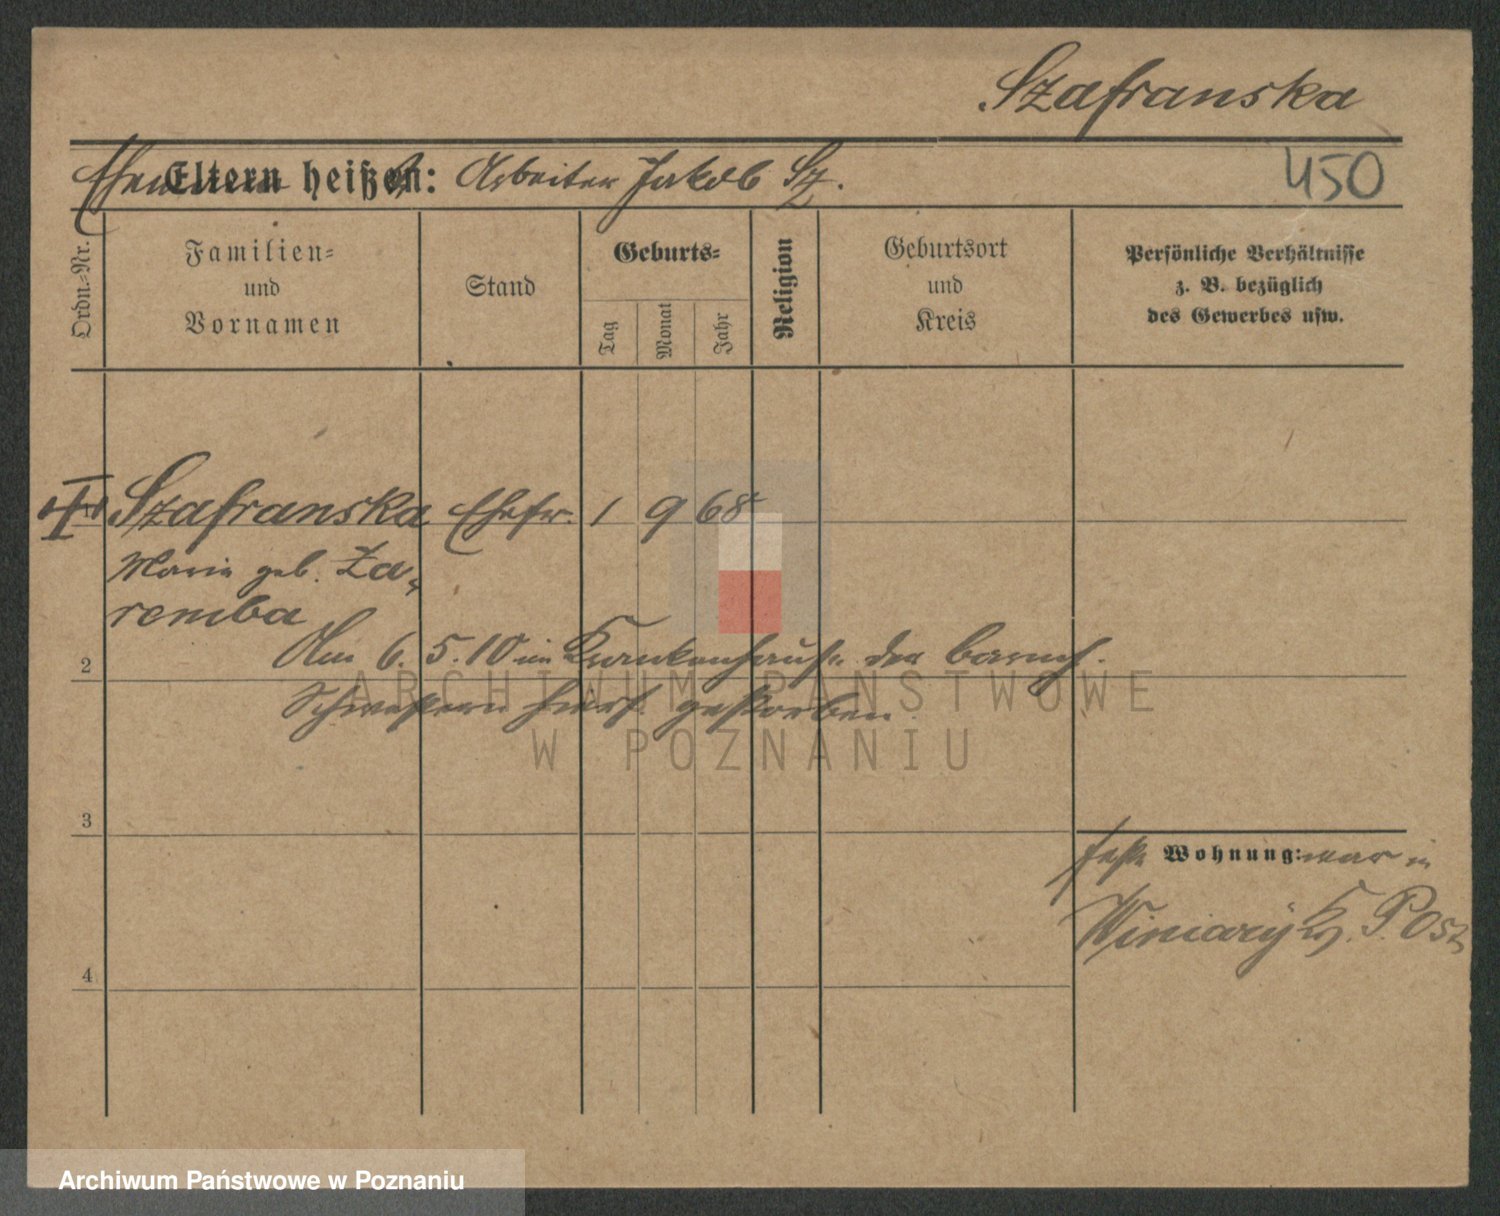 Szafranska
Ehemann Eltern heißen: Arbeiter Jakob Sz.
450
Ordn.-Nr.
Familien-
und
Vornamen
Stand
Geburts-
Tag
Monat
Jahr
Religion
Geburtsort
und
Kreis
Persönliche Verhältnisse
z. B. bezüglich
des Gewerbes usw.
Szafranska Ehefr. 1 9 68
Marie geb. Za-
remba
Am 6. 5. 10 im Krankenhause der barmh.
2
Schwestern hiers. gestorben.
3
4
feste Wohnung: war in
Winiary Kr. P. Ost
ARCHIWUM PAŃSTWOWE
W POZNANIU
Archiwum Państwowe w Poznaniu